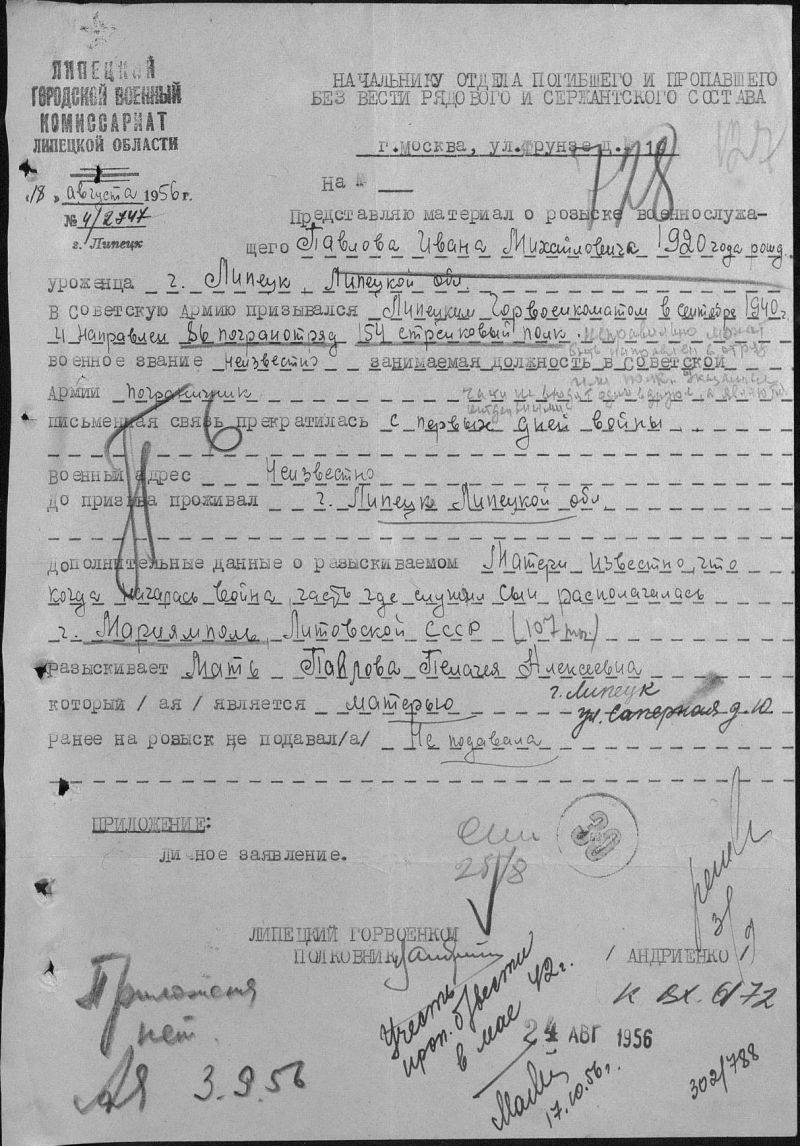 ЛИПЕЦКИЙ
ГОРОДСКОЙ ВОЕННЫЙ
КОМИССАРИАТ
ЛИПЕЦКОЙ ОБЛАСТИ
"18" августа 1956 г.
№ 4/2747
г. Липецк
НАЧАЛЬНИКУ ОТДЕЛА ПОГИБШЕГО И ПРОПАВШЕГО
БЕЗ ВЕСТИ РЯДОВОГО И СЕРЖАНТСКОГО СОСТАВА
г.Москва, ул.Фрунзе д. 19
На №
728
Представляю материал о розыске военнослужа-
щего Павлова Ивана Михайловича 1920 года рожд.
уроженца г. Липецк, Липецкой обл.
в Советскую Армию призывался Липецким Горвоенкоматом в сентябре 1940 г.
и направлен 86 погранотряд 154 стрелковый полк
военное звание неизвестно занимаемая должность в Советской
Армии пограничник
письменная связь прекратилась с первых дней войны
Военный адрес Неизвестно
До призыва проживал г. Липецк Липецкой обл
Дополнительные данные о разыскиваемом Матери известно, что
когда началась война часть где служил сын располагалась
г. Мариямполь, Литовской ССР (107 )
разыскивает Мать Павлова Пелагея Алексеевна
который /ая/ является матерью
г. Липецк
ул. Саперная д. 10
ранее на розыск не подавал/а/ Не подавала
ПРИЛОЖЕНИЕ:
Личное заявление.
25/8
30
ЛИПЕЦКИЙ ГОРВОЕНКОМ
ПОЛКОВНИК / АНДРИЕНКО /
Приложения
нет.
3.9.56
Учесть
проп. б/вести
в мае 42 г.
24 АВГ 1956
17.10.56 г.
к вх. 6172
302/788